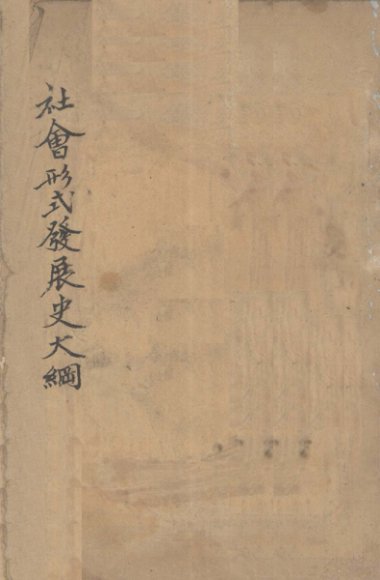 社會形式發展史大綱